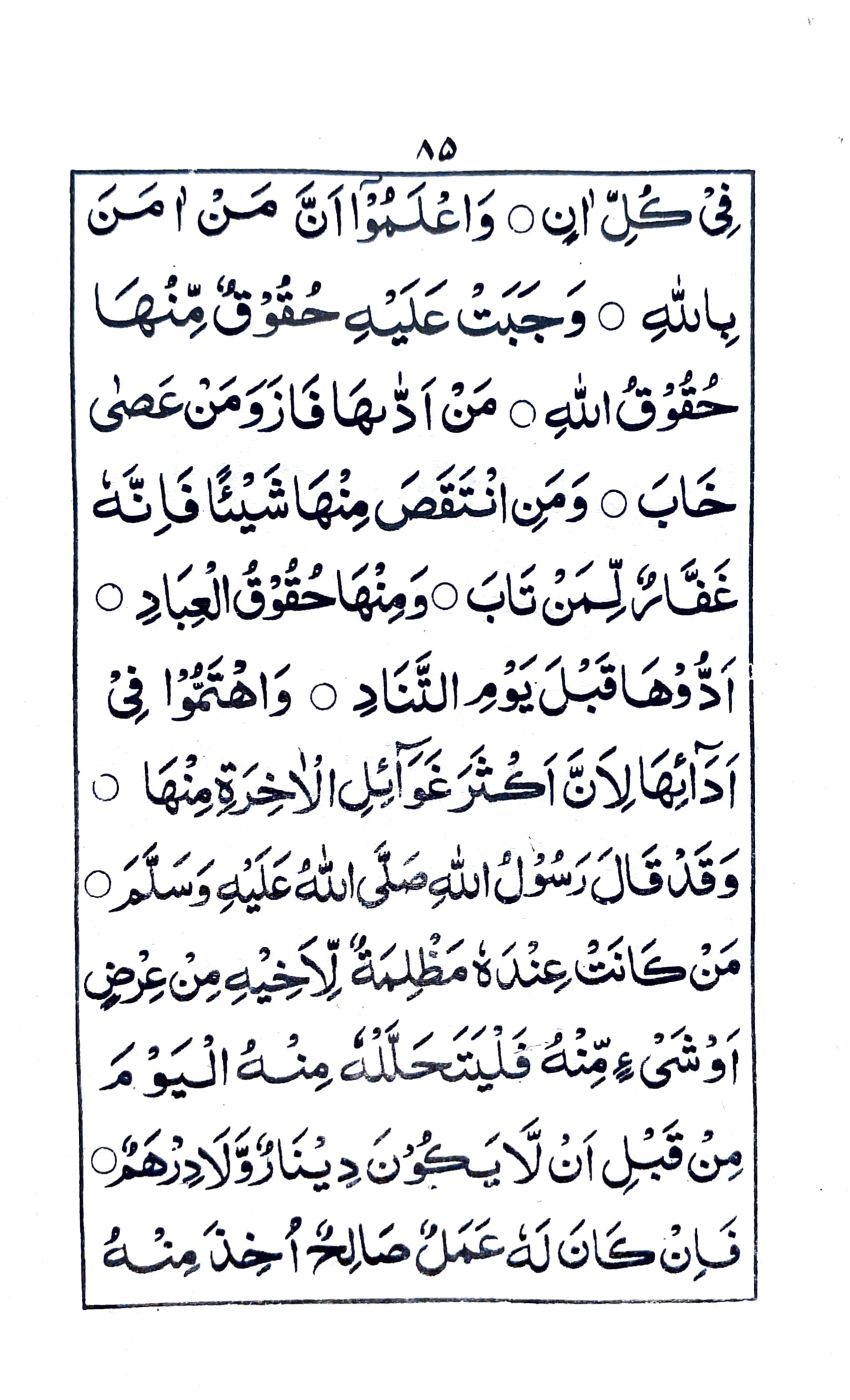 ۸۵
فِیْ كُلِّ اٰنٍ ○ وَاعْلَمُوْۤا اَنَّ مَنْ اٰمَنَ
بِاللّٰهِ ○ وَجَبَتْ عَلَیْهِ حُقُوْقٌ مِّنْهَا
حُقُوْقُ اللّٰهِ ○ مَنْ اَدّٰىهَا فَازَ وَمَنْ عَصٰی
خَابَ ○ وَمَنِ انْتَقَصَ مِنْهَا شَیْئًا فَاِنَّهٗ
غَفَّارٌ لِّمَنْ تَابَ ○ وَمِنْهَا حُقُوْقُ الْعِبَادِ ○
اَدُّوْهَا قَبْلَ یَوْمِ التَّنَادِ ○ وَاهْتَمُّوْا فِیْ
اَدَآئِهَا لِاَنَّ اَكْثَرَ غَوَآئِلِ الْاٰخِرَةِ مِنْهَا ○
وَقَدْ قَالَ رَسُوْلُ اللّٰهِ صَلَّی اللّٰهُ عَلَیْهِ وَسَلَّمَ ○
مَنْ كَانَتْ عِنْدَهٗ مَظْلِمَةٌ لِّاَخِیْهِ مِنْ عِرْضٍ
اَوْ شَیْءٍ مِّنْهُ فَلْیَتَحَلَّلْهُ مِنْهُ الْیَوْمَ
مِنْ قَبْلِ اَنْ لَّا یَكُوْنَ دِیْنَارٌ وَّلَا دِرْهَمٌ ○
فَاِنْ كَانَ لَهٗ عَمَلٌ صَالِحٌ اُخِذَ مِنْهُ